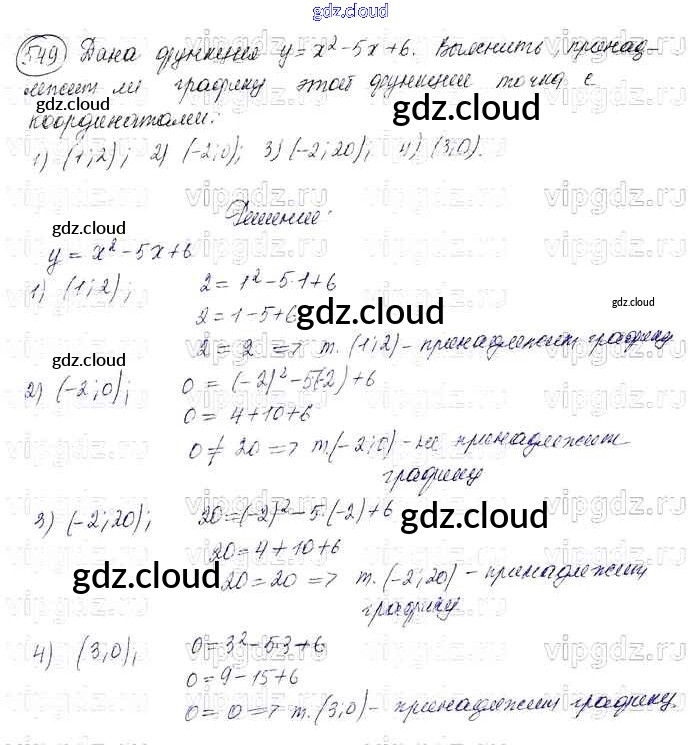 gdz.cloud
549) Дана функция y = x² - 5x + 6. Выяснить, принад-
лежит ли графику этой функции точка с
gdz.cloud
координатами:
1) (1; 2); 2) (-2; 0); 3) (-2; 20); 4) (3; 0).
vipgdz.ru vipgdz.ru vipgdz.ru
Решение:
gdz.cloud
y = x² - 5x + 6
1) (1; 2); 2 = 1² - 5·1 + 6
gdz.cloud
2 = 1 - 5 + 6
gdz.cloud
2 = 2 => т. (1; 2) - принадлежит графику
gdz.cloud
2) (-2; 0); 0 = (-2)² - 5(-2) + 6
0 = 4 + 10 + 6
0 ≠ 20 => т. (-2; 0) - не принадлежит
графику
3) (-2; 20); 20 = (-2)² - 5·(-2) + 6
gdz.cloud
20 = 4 + 10 + 6
gdz.cloud
20 = 20 => т. (-2; 20) - принадлежит
графику
4) (3; 0); 0 = 3² - 5·3 + 6
0 = 9 - 15 + 6
0 = 0 => т. (3; 0) - принадлежит графику.